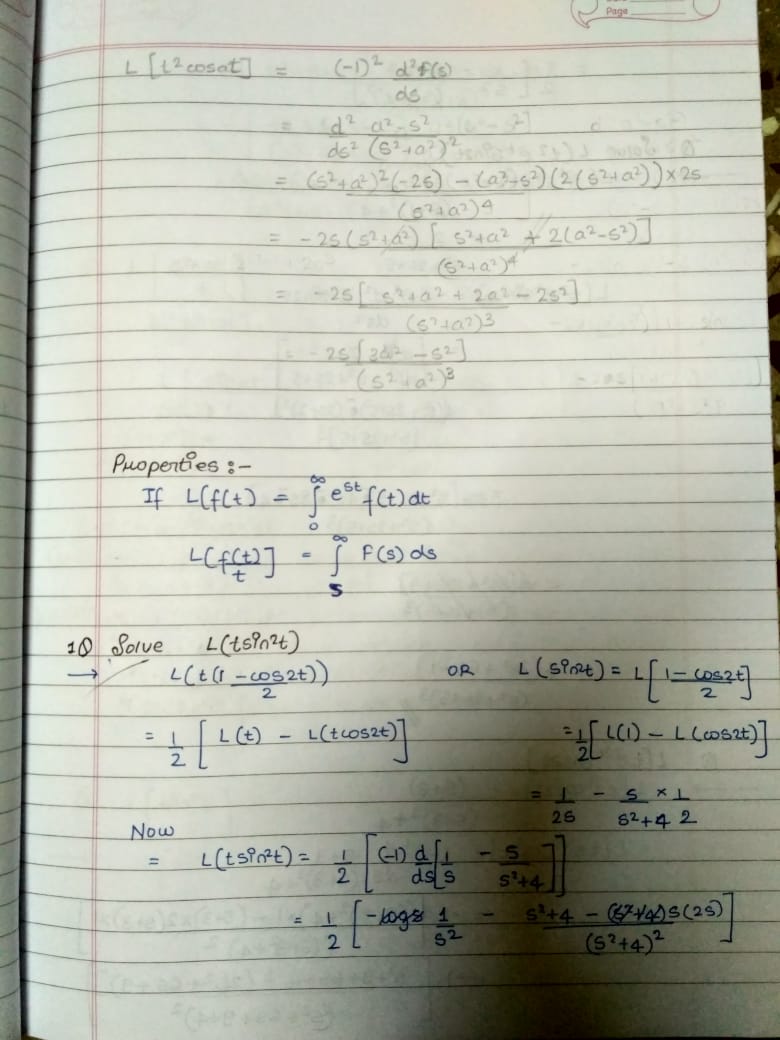 Page
L [t²cosat] = (-1)² d²f(s)/ds
= d²/ds² (a²-s²)/(s²+a²)²
= ((s²+a²)²(-2s) - (a²-s²)(2(s²+a²))×2s)/(s²+a²)4
= -2s(s²+a²) [s²+a² + 2(a²-s²)]/(s²+a²)4
= -2s[s²+a² + 2a² - 2s²]/(s²+a²)3
= -2s[3a² - s²]/(s²+a²)3
Properties :-
If L(f(t) = ∫₀^∞ e^st f(t) dt
L[f(t)/t] = ∫_s^∞ F(s) ds
1Q Solve L(tsin²t)
→ L(t(1-cos2t)/2)) OR L(sin²t) = L[(1-cos2t)/2]
= 1/2 [L(t) - L(tcos2t)] = 1/2 [L(1) - L(cos2t)]
= 1/2s - s/(s²+4) × 1/2
Now
= L(tsin²t) = 1/2 [(-1) d/ds [1/s - s/(s²+4)]]
= 1/2 [- 1/s² - (s²+4 - s(2s))/(s²+4)²]